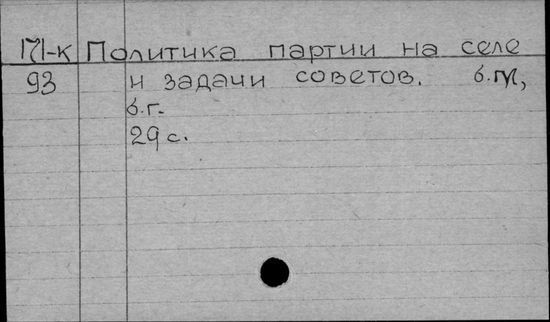 171-к Политика партии на селе
93 и задачи советов. б.м,
б.г.
29 с.